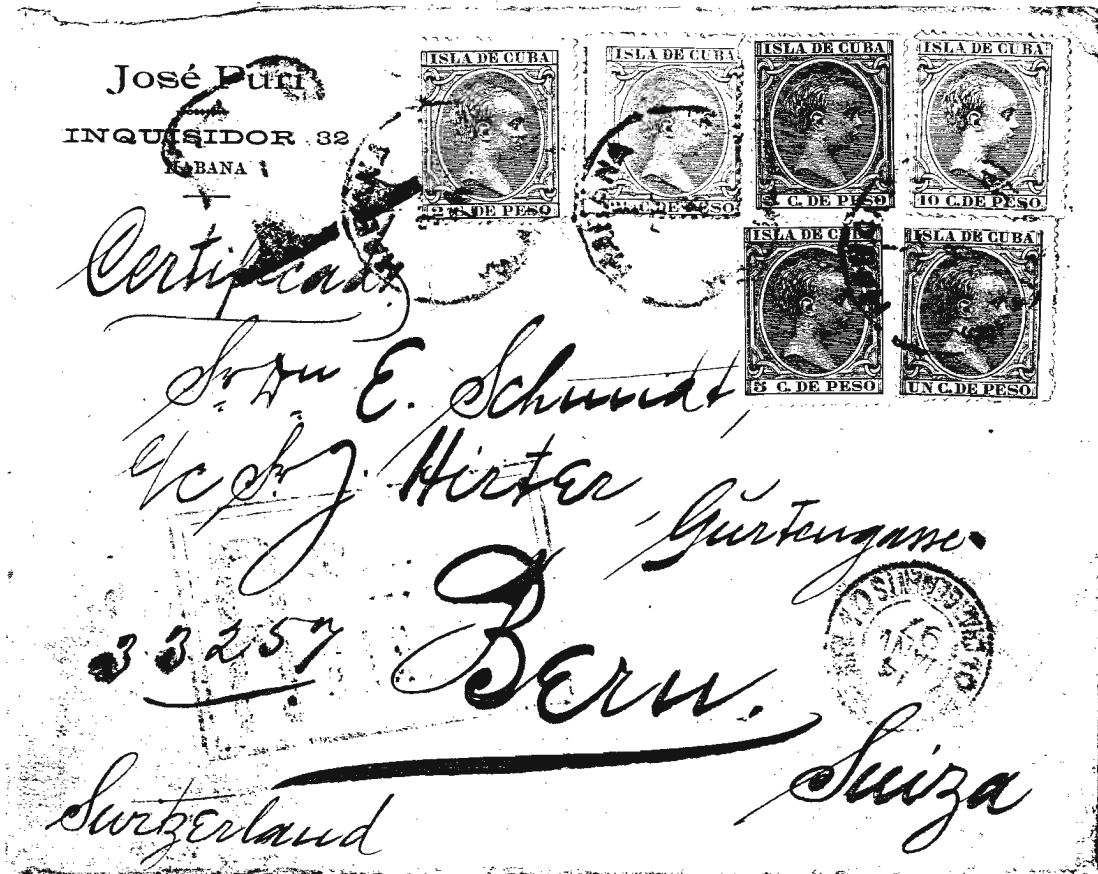 José Puri
INQUISIDOR 32
HABANA
ISLA DE CUBA
DE PESO
ISLA DE CUBA
C. DE PESO
ISLA DE CUBA
C. DE PESO
ISLA DE CUBA
10 C. DE PESO
ISLA DE CUBA
5 C. DE PESO
ISLA DE CUBA
UN C. DE PESO
HABANA
Certificada
Sr. Dn E. Schmidt,
c/c Sr J. Hirter
Gurtengasse
33257
Bern.
Suiza
Switzerland